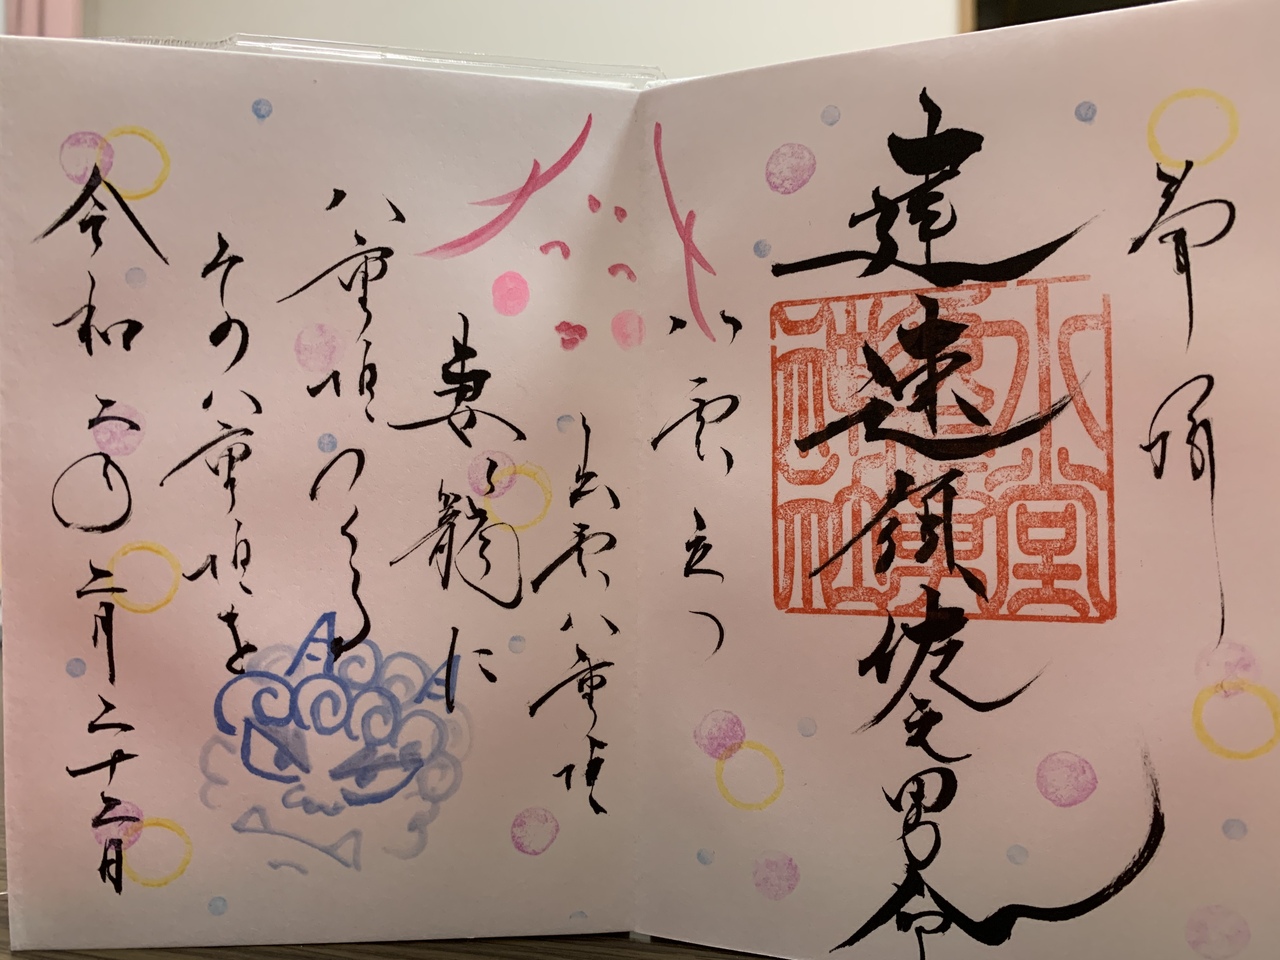 建速須佐之男命
水堂須佐男神社
八雲立つ
出雲八重垣
妻籠に
八重垣つくる
その八重垣を
令和二年二月二十二日